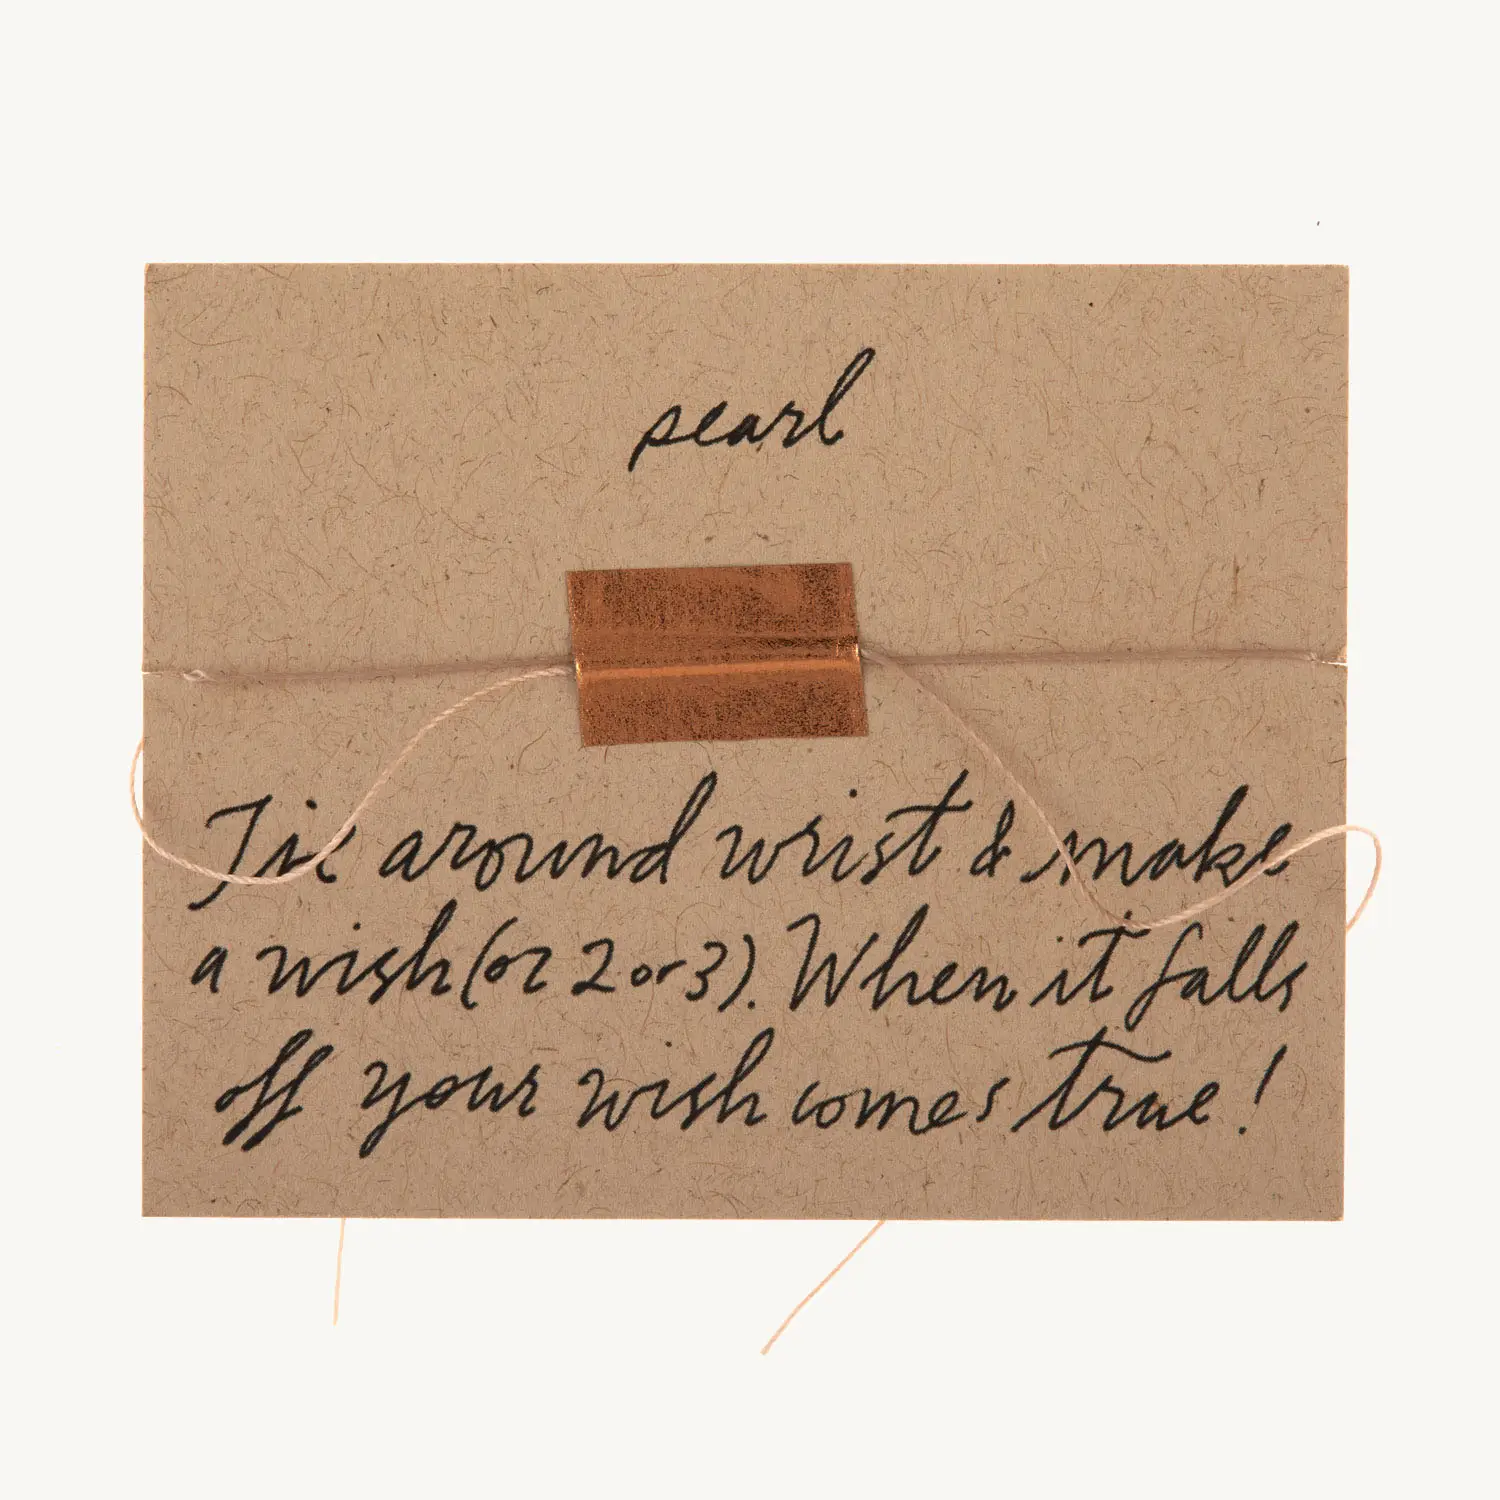 pearl
Tie around wrist & make
a wish (or 2 or 3). When it falls
off your wish comes true!